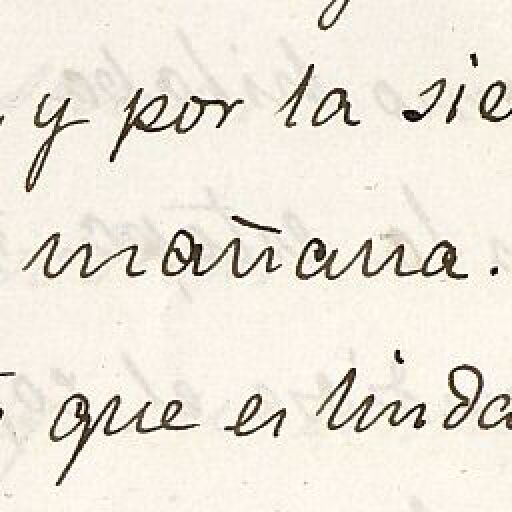 y por la sie
mañana.
que es linda